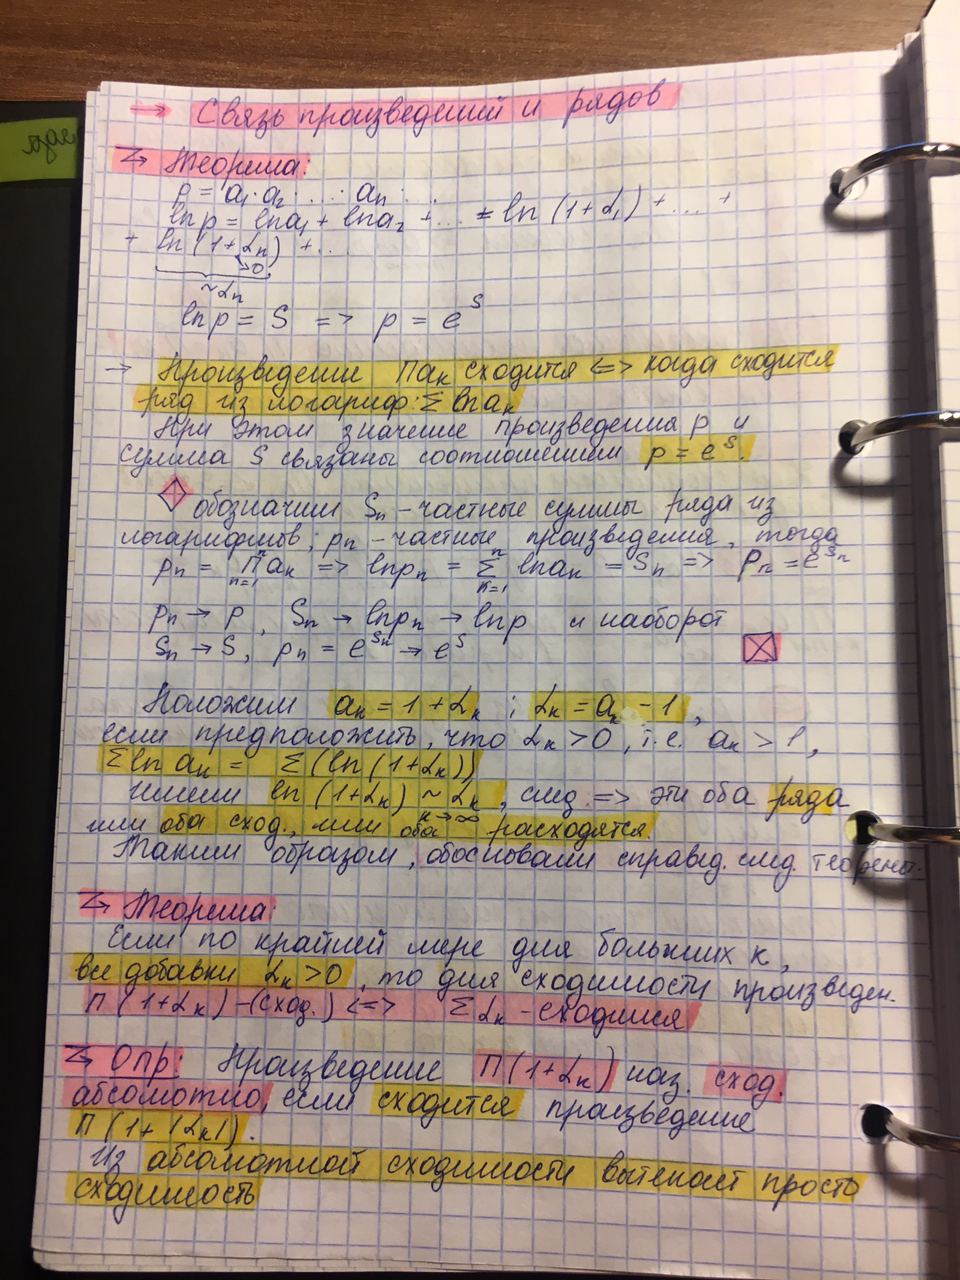 → Связь произведений и рядов
Теорема:
p = a₁·a₂ · ... · aₙ · ...
ln p = ln a₁ + ln a₂ + ... = ln (1+α₁) + ... +
+ ln (1+αₙ) + ...
→0
~αₙ
ln p = S => p = e^S
→ Произведение Πaₖ сходится <=> когда сходится
ряд из логариф: Σ ln aₖ
При этом значение произведения p и
сумма S связаны соотношением p = e^S.
обозначим Sₙ – частные суммы ряда из
логарифмов; pₙ – частные произведения, тогда
pₙ = Π(n=1, n) aₖ => ln pₙ = Σ(k=1, n) ln aₖ = Sₙ => pₙ = e^Sₙ
pₙ → p, Sₙ → ln pₙ → ln p и наоборот
Sₙ → S, pₙ = e^Sₙ → e^S
Положим aₖ = 1 + αₖ ; αₖ = aₖ - 1,
если предположить, что αₖ > 0, т.е. aₖ > 1,
Σ ln aₖ = Σ (ln (1+αₖ))
имеем ln (1+αₖ) ~ αₖ, след. => эти оба ряда
k→∞
или оба сход., или оба расходятся.
Таким образом, обосновали справед. след. теоремы.
Теорема:
Если по крайней мере для больших k,
все добавки αₖ > 0, то для сходимости произведен.
Π (1+αₖ) – (сход.) <=> Σ αₖ – сходится
Опр: Произведение Π(1+αₖ) наз. сход.
абсолютно, если сходится произведение
Π (1+ |αₖ|).
Из абсолютной сходимости вытекает просто
сходимость